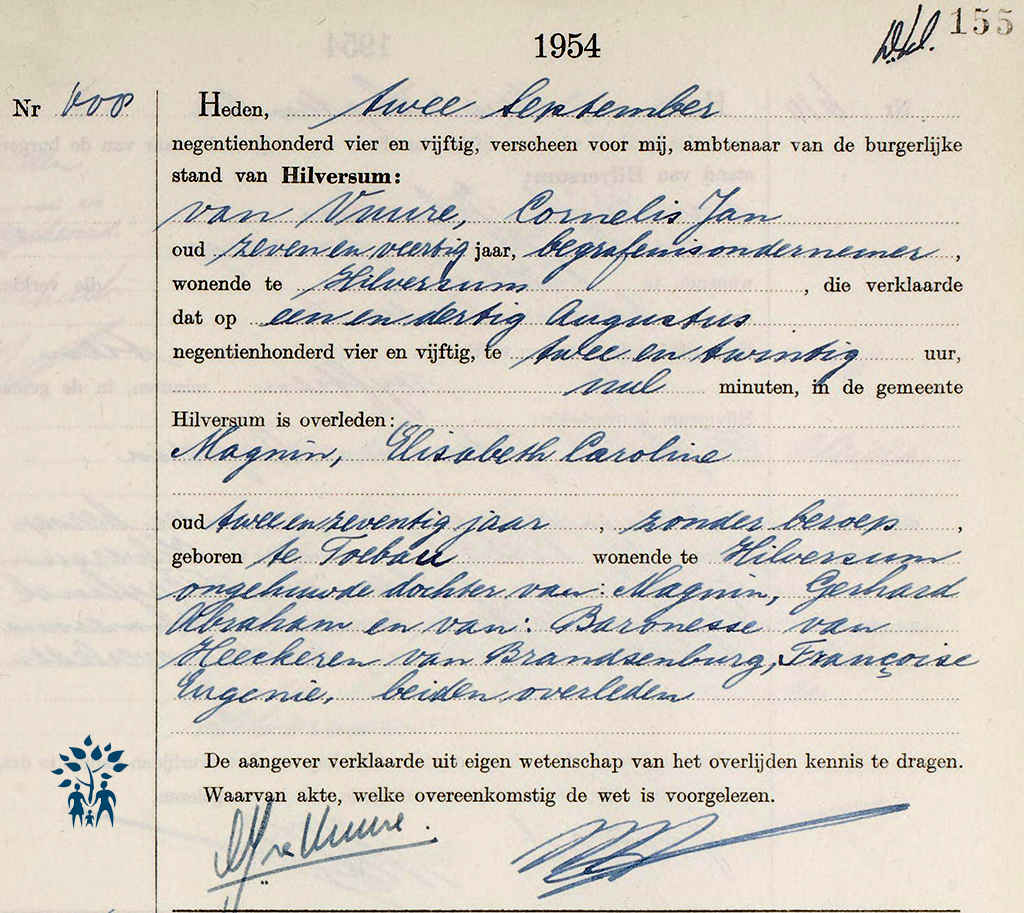 155
1954
Nr
Heden, twee September
negentienhonderd vier en vijftig, verscheen voor mij, ambtenaar van de burgerlijke
stand van Hilversum:
van Vuure, Cornelis Jan
oud zeven en veertig jaar, begrafenisondernemer ,
wonende te Hilversum , die verklaarde
dat op een en dertig Augustus
negentienhonderd vier en vijftig, te twee en twintig uur,
nul minuten, in de gemeente
Hilversum is overleden:
Magnin, Elisabeth Caroline
oud twee en zeventig jaar , zonder beroep ,
geboren te wonende te Hilversum
ongehuwde dochter van: Magnin, Gerhard
Abraham en van: Baronesse van
Heeckeren van Brandsenburg, Françoise
Eugenie, beiden overleden
De aangever verklaarde uit eigen wetenschap van het overlijden kennis te dragen.
Waarvan akte, welke overeenkomstig de wet is voorgelezen.